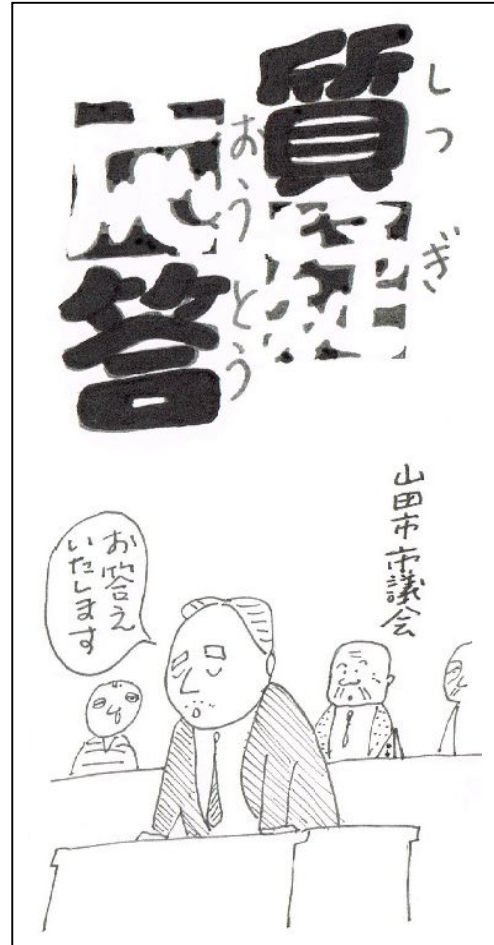 質疑
しつぎ
応答
おうとう
山田市市議会
お答え
いたします